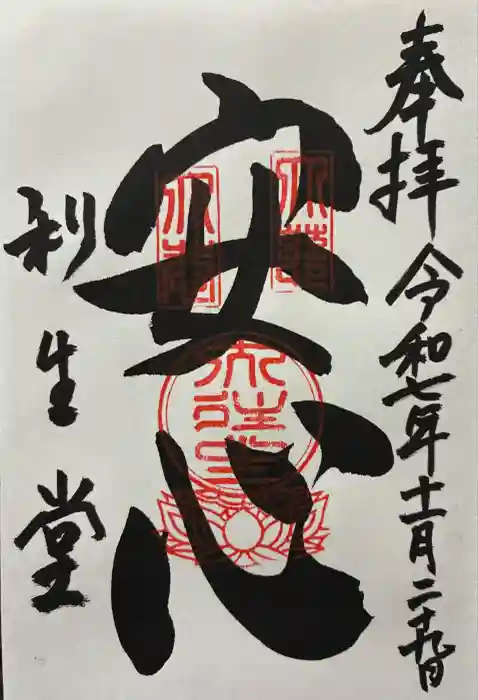 奉拝
令和七年十一月二十九日
安心
利生堂